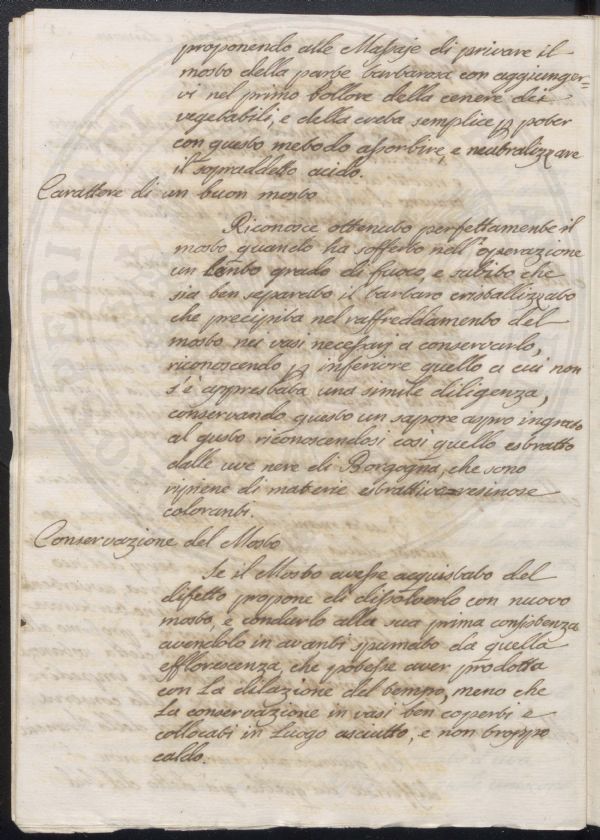 proponendo alle Massaje di privare il
mosto della parte tartarosa con aggiunger=
vi nel primo bollore della cenere dei
vegetabili, e della creta semplice p poter
con questo metodo assorbire, e neutralizzare
il sopraddetto acido.
Carattere di un buon mosto
Riconosce ottenuto perfettamente il
mosto quando ha sofferto nell'operazione
un lento grado di fuoco, e subito che
sia ben separato il tartaro cristallizzato
che precipita nel raffreddamento del
mosto nei vasi necessarj a conservarlo,
riconoscendo p inferiore quello a cui non
s'è apprestata una simile diligenza,
conservando questo un sapore aspro ingrato
al gusto riconoscendosi così quello estratto
dalle uve nere di Borgogna, che sono
ripiene di materie estrattive=resinose
coloranti.
Conservazione del Mosto
Se il Mosto avesse acquistato del
difetto propone di dissolverlo con nuovo
mosto, e condurlo alla sua prima consistenza
avendolo in avanti spumato da quella
efflorescenza, che potesse aver prodotta
con la dilazione del tempo, meno che
la conservazione in vasi ben coperti e
collocati in luogo asciutto, e non troppo
caldo.